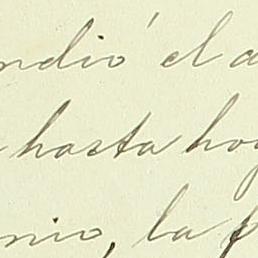 ndió el a
hasta hoy
nio, la p